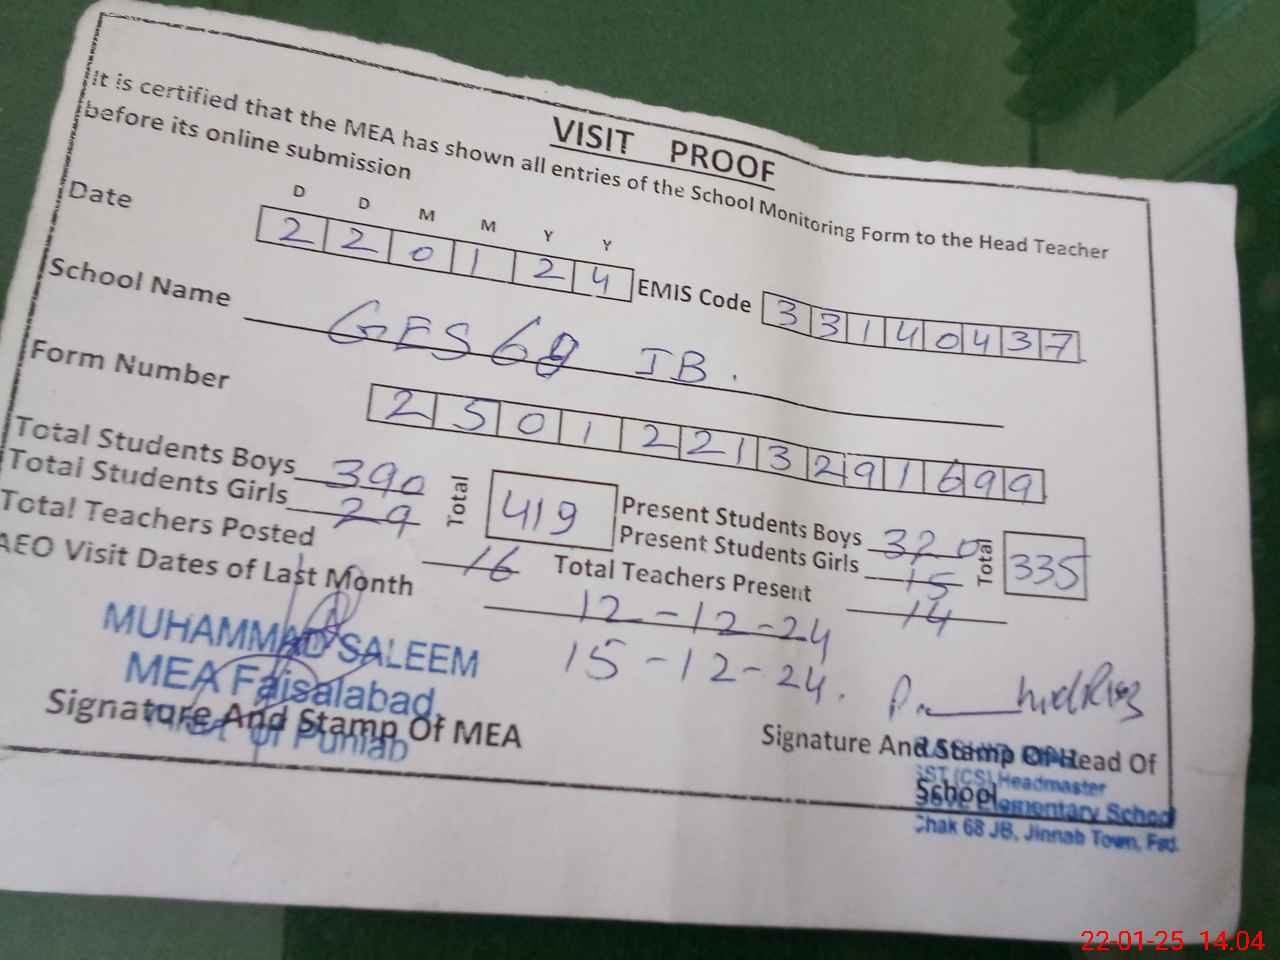 VISIT PROOF
It is certified that the MEA has shown all entries of the School Monitoring Form to the Head Teacher
before its online submission
D D M M Y Y
Date 2 2 0 1 2 4 EMIS Code 3 3 1 4 0 4 3 7
School Name GES 68 JB.
Form Number 2 5 0 1 2 2 1 3 2 9 1 6 9 9
Total Students Boys 390 Total 419 Present Students Boys 320 Total 335
Total Students Girls 29 Present Students Girls 15
Total Teachers Posted 16 Total Teachers Present 14
AEO Visit Dates of Last Month 12-12-24
15-12-24.
MUHAMMAD SALEEM
MEA Faisalabad
of Punjab
Signature And Stamp Of MEA
Signature And Stamp Of Head Of
School
SST (CS) Headmaster
Elementary School
Chak 68 JB, Jinnah Town, Fsd.
22-01-25 14:04